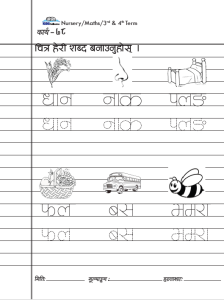 Nursery/Maths/3rd & 4th Term
कार्य - ७८
चित्र हेरी शब्द बनाउनुहोस् ।
धान नाक पलङ
धान नाक पलङ
फल बस भमरा
फल बस भमरा
मिति: मूल्याङ्कन: हस्ताक्षर: